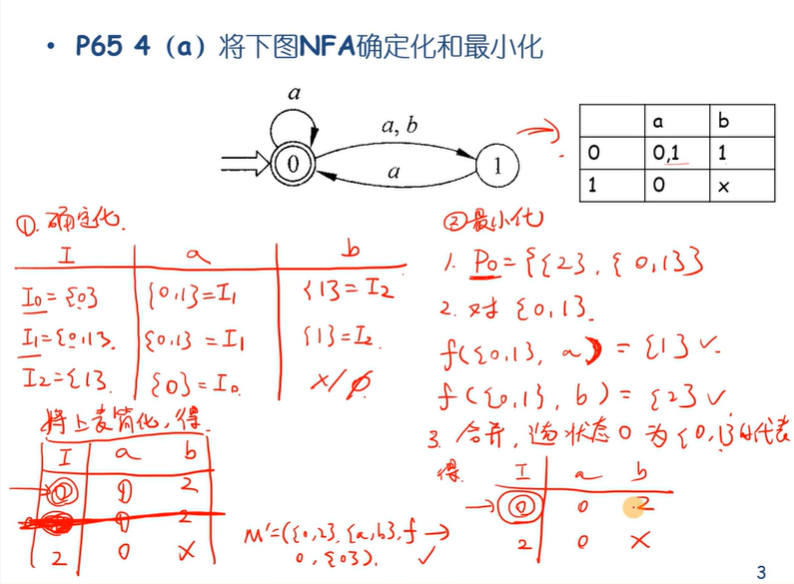 • P65 4（a）将下图NFA确定化和最小化
a
a, b
a
0
1
a b
0 0,1 1
1 0 x
①. 确定化.
I a b
I₀={0} {0,1}=I₁ {1}=I₂
I₁={0,1}. {0,1}=I₁ {1}=I₂.
I₂={1}. {0}=I₀ ×/ϕ
将上表简化,得.
I a b
2
2
2 0 ×
M'=({0,2},{a,b},f
0,{0}). ✓
②最小化
1. P₀={{2},{0,1}}
2. 对{0,1}.
f({0,1}, a)={1}✓.
f({0,1}, b)={2}✓
3. 合并,选状态0为{0,1}的代表
得.
I a b
0 0 2
2 0 ×
3